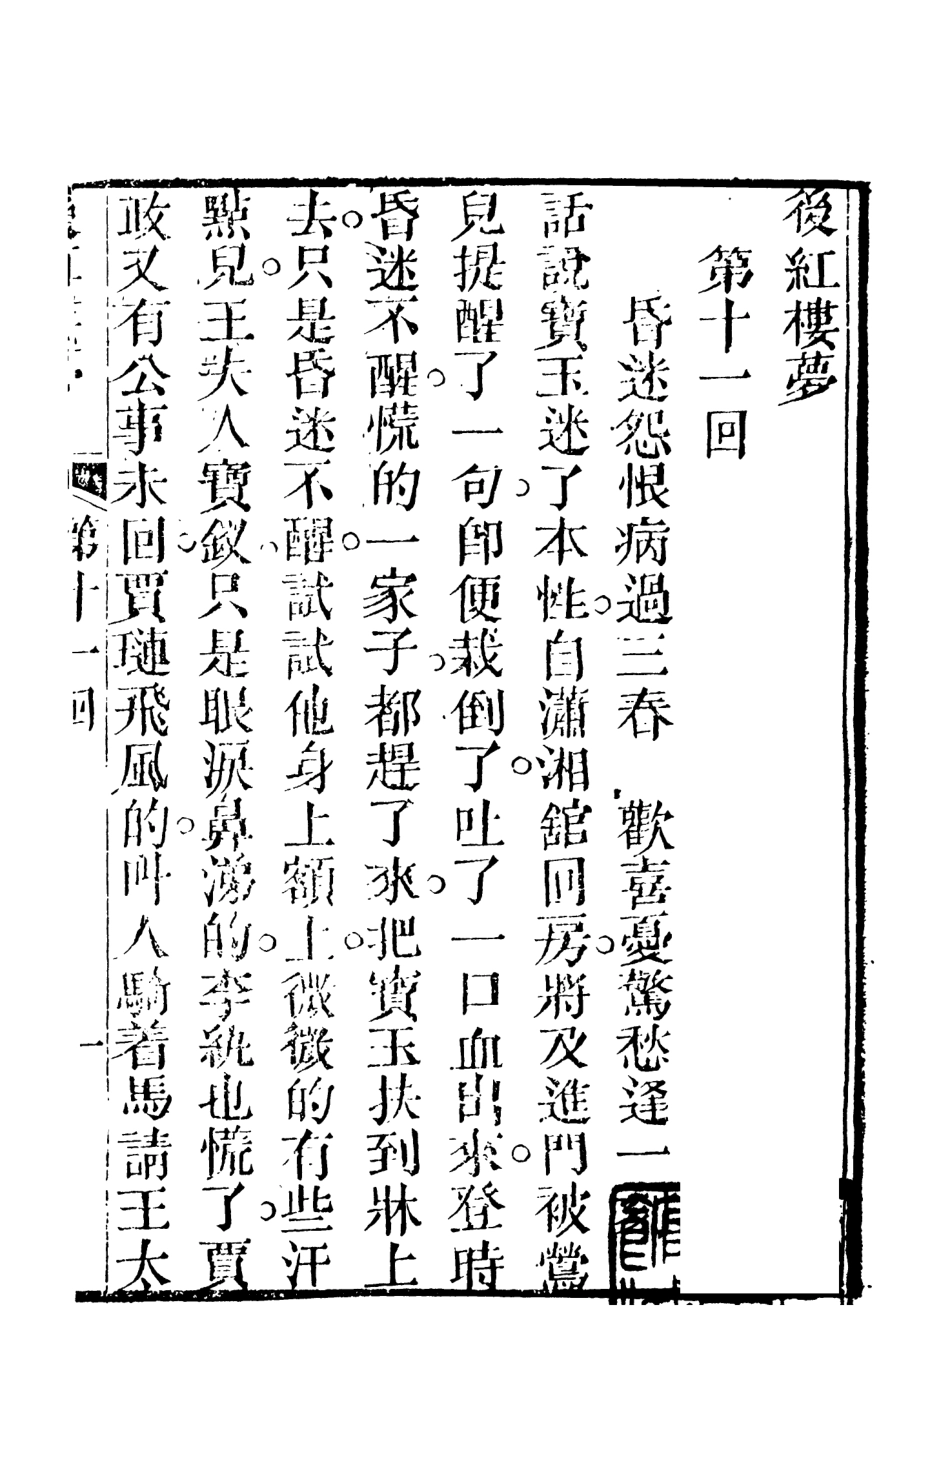 後紅樓夢
第十一回
昏迷怨恨病過三春　歡喜憂驚愁逢一
話說寶玉迷了本性自瀟湘舘回房將及進門被鶯
兒提醒了一句卽便栽倒了吐了一口血出來登時
昏迷不醒慌的一家子都趕了來把寳玉扶到牀上
去只是昏迷不醒試試他身上額上微微的有些汗
點兒王夫人寶釵只是眼淚鼻涕的李紈也慌了賈
政又有公事未回賈璉飛風的叫人騎着馬請王太
第十一回
一